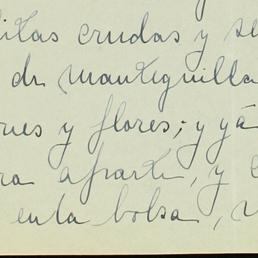 itas crudas y se
de mantequilla
ores y flores; y ya
ra aparte, y
en la bolsa,